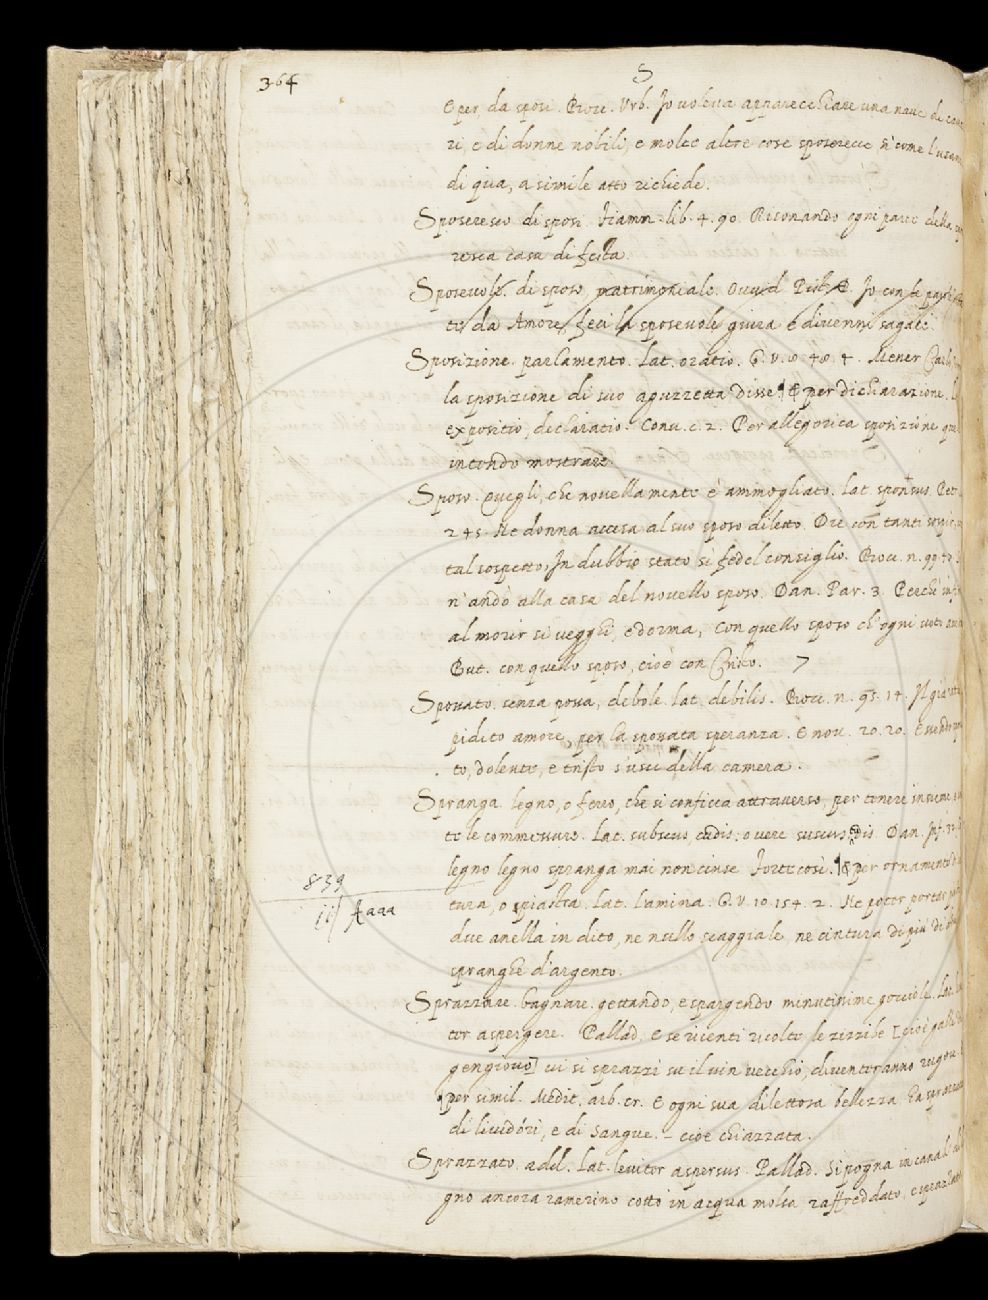 364
S
E per, da sposi. Rocc. Vrb. Io voleva apparecchiare una nave di
ri, e di donne nobili, e molte altre cose sposerecce si come l'usan
di qua, a simile atto richiede.
Sposeresco. di sposi. Fiamm. lib. 4. 90. Risonando ogni parte della
resca casa di festa.
Sposevole. di sposo, matrimoniale. Io con le
te da Amore, feci la sposevole giura e divenni sagace.
Sposizione. parlamento. Lat. oratio. G. V. 8. 48. 4. Messer
la sposizione di suo aguzzetta disse. ¶ E per dichiarazione.
expositio, declaratio. Conv. c. 2. Per allegorica sposizione
intendo mostrare.
Sposo. Quegli, che novellamente è ammogliato. Lat. sponsus. Pet.
245. Ne donna accesa al suo sposo diletto. Die con tanti
tal sospetto, In dubbio stato si fedel consiglio. Bocc. n. 99.
n'andò alla casa del novello sposo. Dan. Par. 3. Perchè
al morir si vegghi, e dorma, Con quello sposo ch'ogni voto
But. con quello sposo, cioè con Christo.
Spossato. senza possa, debole. lat. debilis. Bocc. n. 95. 14. Il già
pidito amore, per la spossata speranza. E nov. 20. 20. Essendo
to, dolente, e tristo s'uscì della camera.
Spranga. legno, o ferro, che si conficca attraverso, per tenere insieme
te le commessure. Lat. subscus, cudis: overe Dan. Inf. 32.
legno legno spranga mai non cinse Forte così. ¶ E per ornamento
tura, o spiastra. Lat. lamina. G. V. 10. 154. 2. Ne poter portar
839
due anella in dito, ne nullo scaggiale, ne cintura di più di
ij Aaaa
spranghe d'argento.
Sprazzare. bagnare gettando, e spargendo minutissime gocciole. Lat.
ter aspergere. Pallad. E se ricenti ricolte le zizzibe [cioè
gengiovo] vi si sprazzi su il vin vecchio, diventeranno
per simil. Medit. arb. cr. E ogni sua dilettosa bellezza
di lividori, e di sangue. – cioè chiazzata.
Sprazzato. add. Lat. leviter aspersus. Pallad. Si pogna in
gno ancora ramerino cotto in acqua molsa raffreddato, e